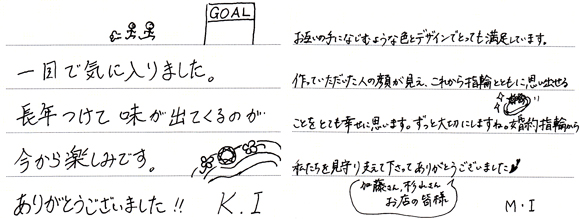 GOAL
一目で気に入りました。
長年つけて味が出てくるのが
今から楽しみです。
ありがとうございました!!
K.I
お互いの手になじむような色とデザインでとっても満足しています。
作っていただいた人の顔が見え、これから指輪とともに思い出せる
ことをとても幸せに思います。ずっと大切にしますね。婚約指輪から
私たちを見守り支えて下さってありがとうございました
加藤さん、杉山さん
お店の皆様
M・I